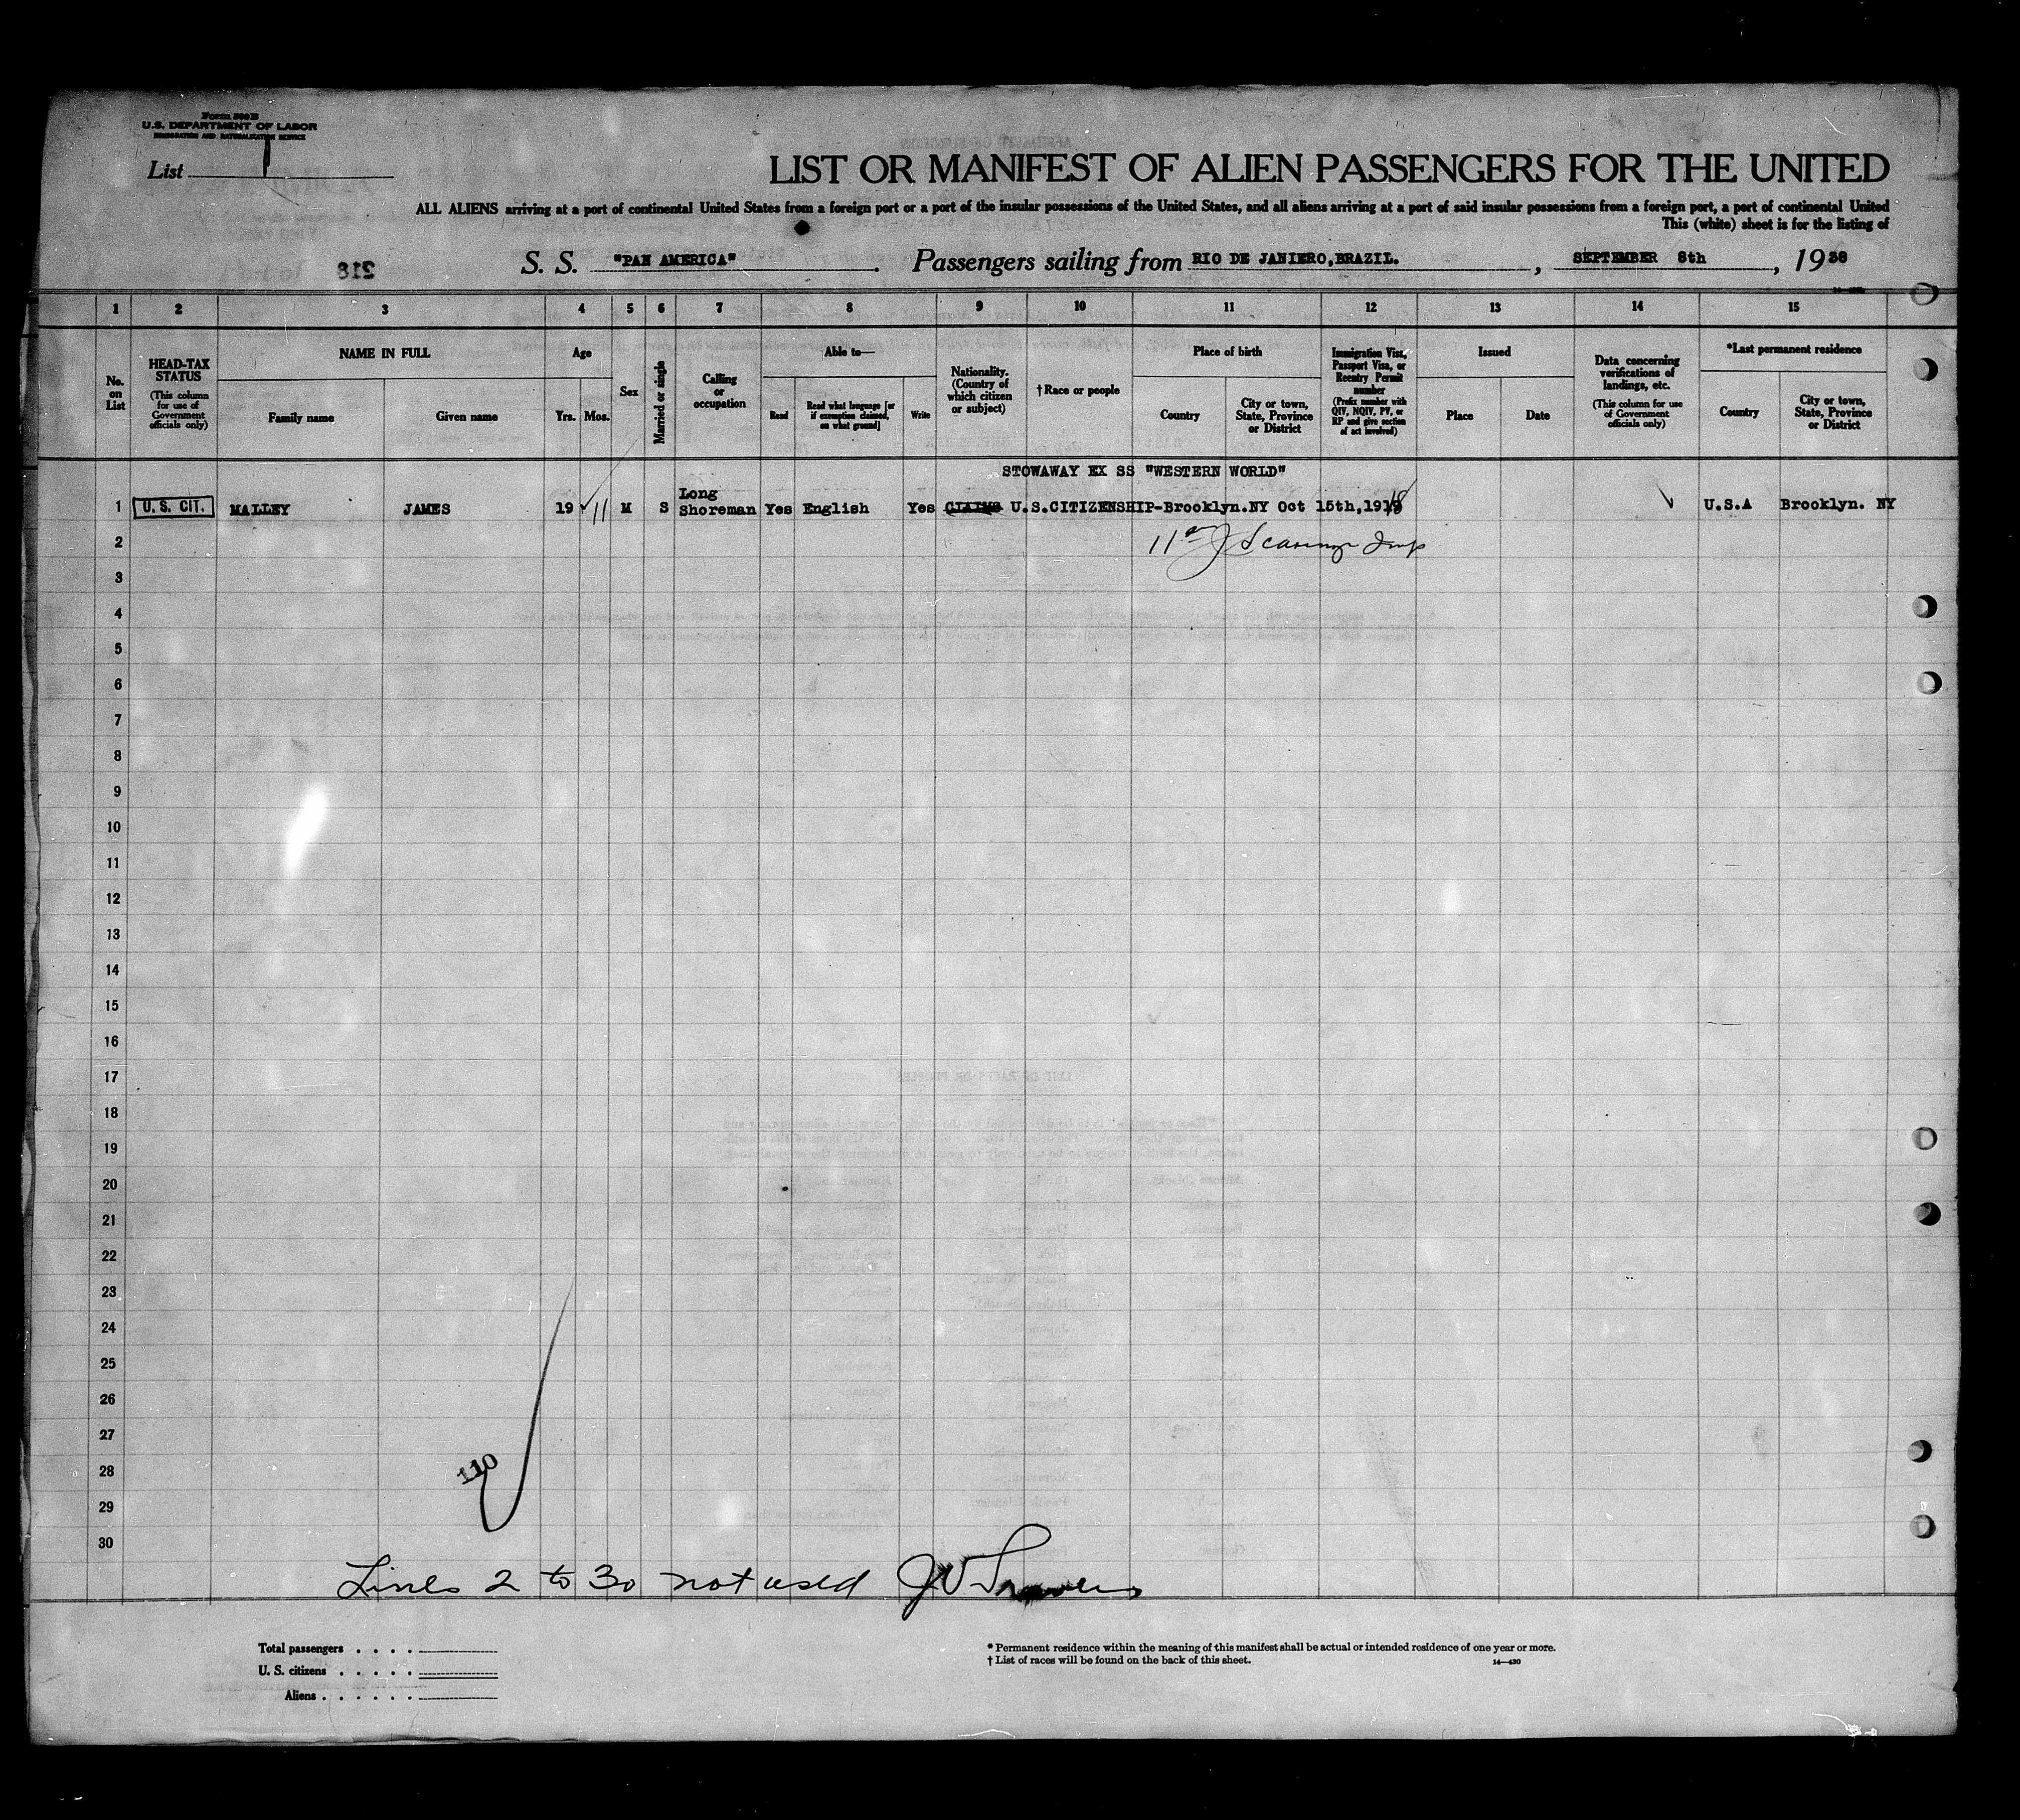 Form 500 B
U.S. DEPARTMENT OF LABOR
IMMIGRATION AND NATURALIZATION SERVICE
List 1
LIST OR MANIFEST OF ALIEN PASSENGERS FOR THE UNITED
ALL ALIENS arriving at a port of continental United States from a foreign port or a port of the insular possessions of the United States, and all aliens arriving at a port of said insular possessions from a foreign port, a port of continental United
This (white) sheet is for the listing of
218
S. S. "PAN AMERICA". Passengers sailing from RIO DE JANIERO,BRAZIL. , SEPTEMBER 8th , 1938
1 2 3 4 5 6 7 8 9 10 11 12 13 14 15
No. on List
HEAD-TAX STATUS (This column for use of Government officials only)
NAME IN FULL
Family name Given name
Age
Yrs. Mos.
Sex
Married or single
Calling or occupation
Able to—
Read Read what language [or if exemption claimed, on what ground] Write
Nationality. (Country of which citizen or subject)
† Race or people
Place of birth
Country City or town, State, Province or District
Immigration Visa, Passport Visa, or Reentry Permit number (Prefix number with QIV, NQIV, PV, or RP and give section of act involved)
Issued
Place Date
Data concerning verifications of landings, etc. (This column for use of Government officials only)
*Last permanent residence
Country City or town, State, Province or District
STOWAWAY EX SS "WESTERN WORLD"
1 U. S. CIT. MALLEY JAMES 19 11 M S Long Shoreman Yes English Yes CLAIMS U.S.CITIZENSHIP-Brooklyn.NY Oct 15th,1918 U.S.A Brooklyn. NY
2
3
4
5
6
7
8
9
10
11
12
13
14
15
16
17
18
19
20
21
22
23
24
25
26
27
28
110
29
30
Lines 2 to 30 not used
Total passengers . . . .
U. S. citizens . . . . .
Aliens . . . . . .
* Permanent residence within the meaning of this manifest shall be actual or intended residence of one year or more.
† List of races will be found on the back of this sheet.
14—430